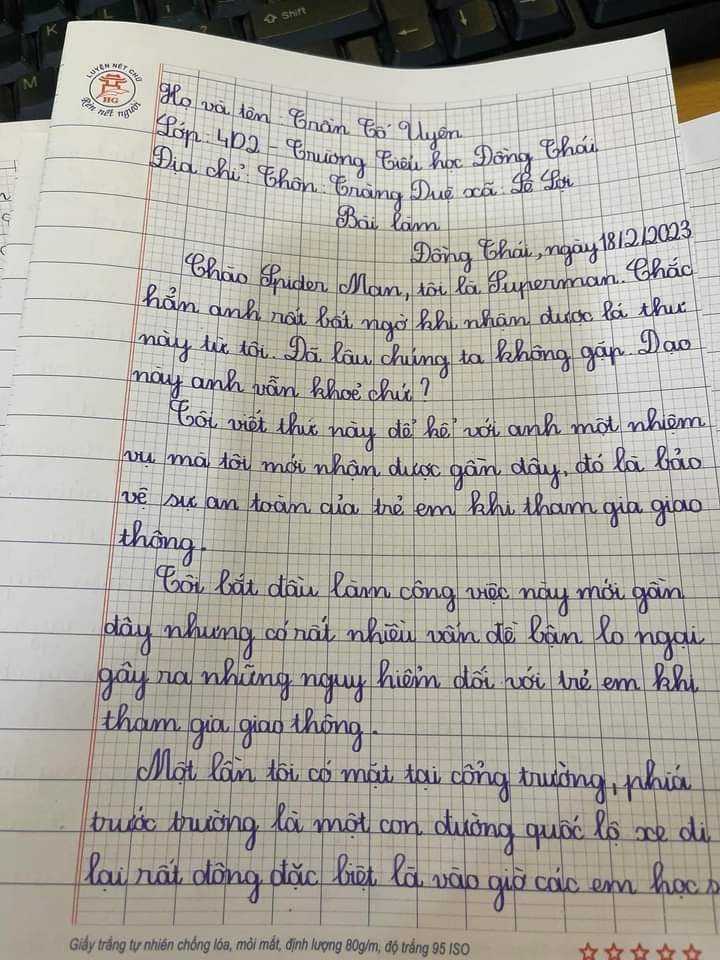 Shift
K
L
M
LUYỆN NÉT CHỮ
HG
Rèn nết người
Họ và tên: Trần Tố Uyên
Lớp: 4D2 - Trường Tiểu học Đồng Thái
Địa chỉ: Thôn: Tràng Duệ xã: Lê Lợi
Bài làm
Đồng Thái, ngày 18/2/2023
Chào Spider Man, tôi là Superman. Chắc
hẳn anh rất bất ngờ khi nhân được lá thư
này từ tôi. Đã lâu chúng ta không gặp. Dạo
này anh vẫn khoẻ chứ?
Tôi viết thư này để kể với anh một nhiệm
vụ mà tôi mới nhận được gần đây, đó là bảo
vệ sự an toàn của trẻ em khi tham gia giao
thông.
Tôi bắt đầu làm công việc này mới gần
đây nhưng có rất nhiều vấn đề bận lo ngại
gây ra những nguy hiểm đối với trẻ em khi
tham gia giao thông.
Một lần tôi có mặt tại cổng trường, phiá
trước trường là một con đường quốc lộ xe đi
lại rất đông đặc biệt là vào giờ các em học
Giấy trắng tự nhiên chống lóa, mỏi mắt, định lượng 80g/m, độ trắng 95 ISO